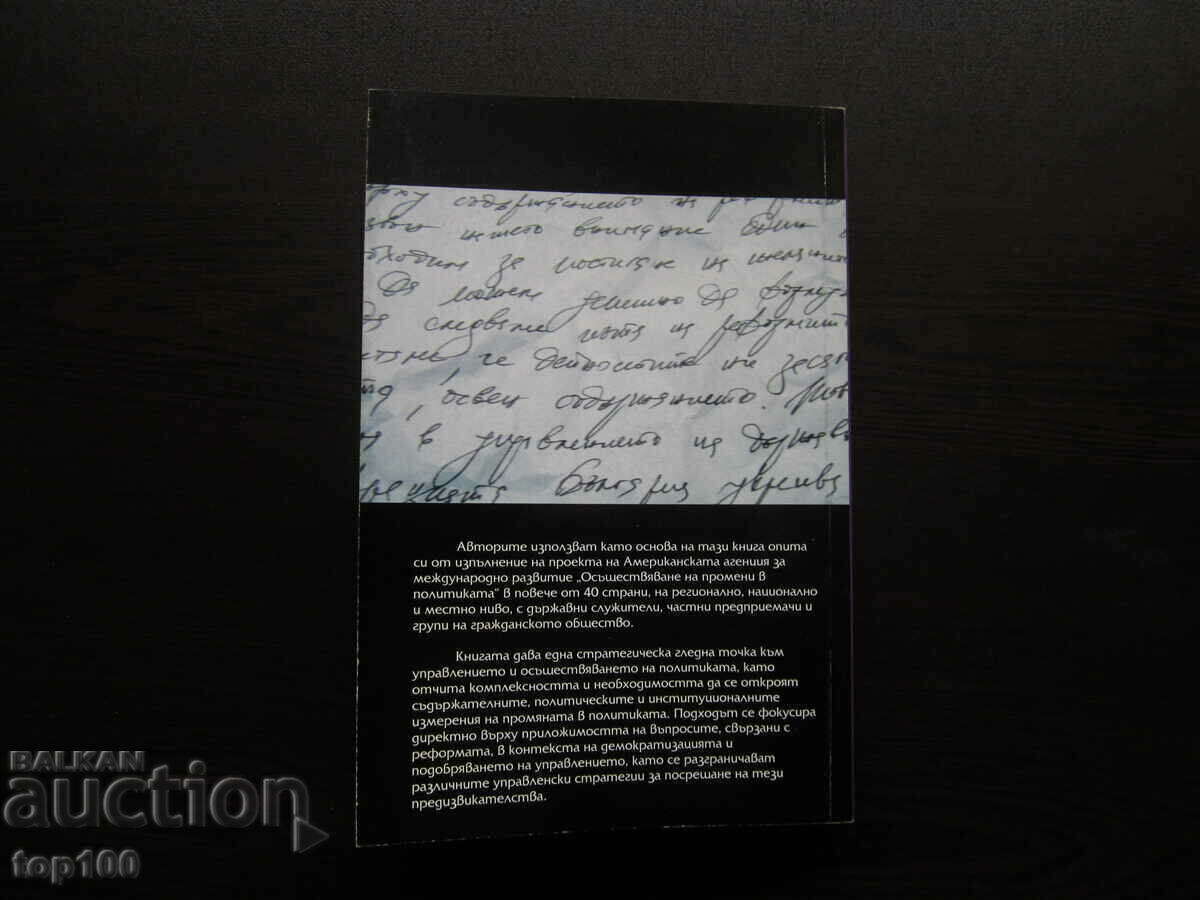 съдържанието на
нашето внимание
за постигане на
Да можем успешно да
да следваме пътя на реформите
че дейностите ни
, освен съдържанието.
в управлението на
България
Авторите използват като основа на тази книга опита
си от изпълнение на проекта на Американската агенция за
международно развитие „Осъществяване на промени в
политиката“ в повече от 40 страни, на регионално, национално
и местно ниво, с държавни служители, частни предприемачи и
групи на гражданското общество.
Книгата дава една стратегическа гледна точка към
управлението и осъществяването на политиката, като
отчита комплексността и необходимостта да се откроят
съдържателните, политическите и институционалните
измерения на промяната в политиката. Подходът се фокусира
директно върху приложимостта на въпросите, свързани с
реформата, в контекста на демократизацията и
подобряването на управлението, като се разграничават
различните управленски стратегии за посрещане на тези
предизвикателства.
BALKAN
auction
top100